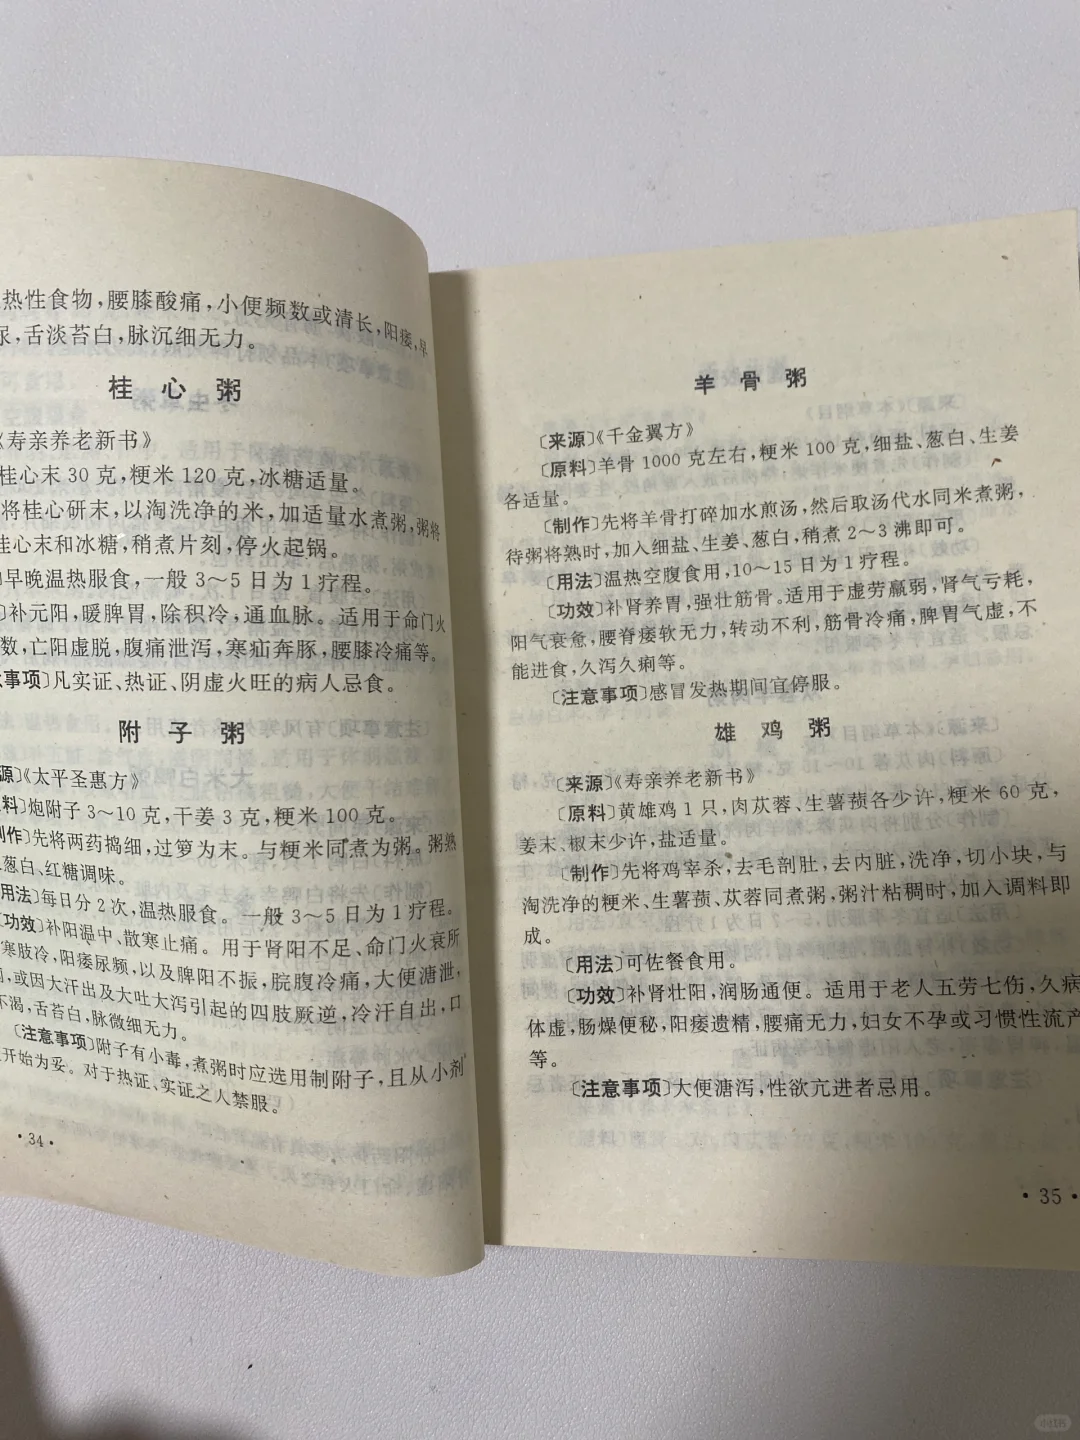 热性食物，腰膝酸痛，小便频数或清长，阳痿，早
尿，舌淡苔白，脉沉细无力。
桂心粥
《寿亲养老新书》
桂心末 30 克，粳米 120 克，冰糖适量。
将桂心研末，以淘洗净的米，加适量水煮粥，粥将
桂心末和冰糖，稍煮片刻，停火起锅。
早晚温热服食，一般 3～5 日为 1 疗程。
补元阳，暖脾胃，除积冷，通血脉。适用于命门火
数，亡阳虚脱，腹痛泄泻，寒疝奔豚，腰膝冷痛等。
事项〕凡实证、热证、阴虚火旺的病人忌食。
附子粥
源〕《太平圣惠方》
料〕炮附子 3～10 克，干姜 3 克，粳米 100 克。
制作〕先将两药捣细，过箩为末。与粳米同煮为粥。粥熟
葱白、红糖调味。
用法〕每日分 2 次，温热服食。一般 3～5 日为 1 疗程。
〔功效〕补阳温中、散寒止痛。用于肾阳不足、命门火衰所
寒肢冷，阳痿尿频，以及脾阳不振，脘腹冷痛，大便溏泄，
，或因大汗出及大吐大泻引起的四肢厥逆，冷汗自出，口
不渴，舌苔白，脉微细无力。
〔注意事项〕附子有小毒，煮粥时应选用制附子，且从小剂
开始为妥。对于热证、实证之人禁服。
·34·
羊骨粥
〔来源〕《千金翼方》
〔原料〕羊骨 1000 克左右，粳米 100 克，细盐、葱白、生姜
各适量。
〔制作〕先将羊骨打碎加水煎汤，然后取汤代水同米煮粥，
待粥将熟时，加入细盐、生姜、葱白，稍煮 2～3 沸即可。
〔用法〕温热空腹食用，10～15 日为 1 疗程。
〔功效〕补肾养胃，强壮筋骨。适用于虚劳羸弱，肾气亏耗，
阳气衰惫，腰脊痿软无力，转动不利，筋骨冷痛，脾胃气虚，不
能进食，久泻久痢等。
〔注意事项〕感冒发热期间宜停服。
雄鸡粥
〔来源〕《寿亲养老新书》
〔原料〕黄雄鸡 1 只，肉苁蓉、生薯蓣各少许，粳米 60 克，
姜末、椒末少许，盐适量。
〔制作〕先将鸡宰杀，去毛剖肚，去内脏，洗净，切小块，与
淘洗净的粳米、生薯蓣、苁蓉同煮粥，粥汁粘稠时，加入调料即
成。
〔用法〕可佐餐食用。
〔功效〕补肾壮阳，润肠通便。适用于老人五劳七伤，久病
体虚，肠燥便秘，阳痿遗精，腰痛无力，妇女不孕或习惯性流产
等。
〔注意事项〕大便溏泻，性欲亢进者忌用。
·35·